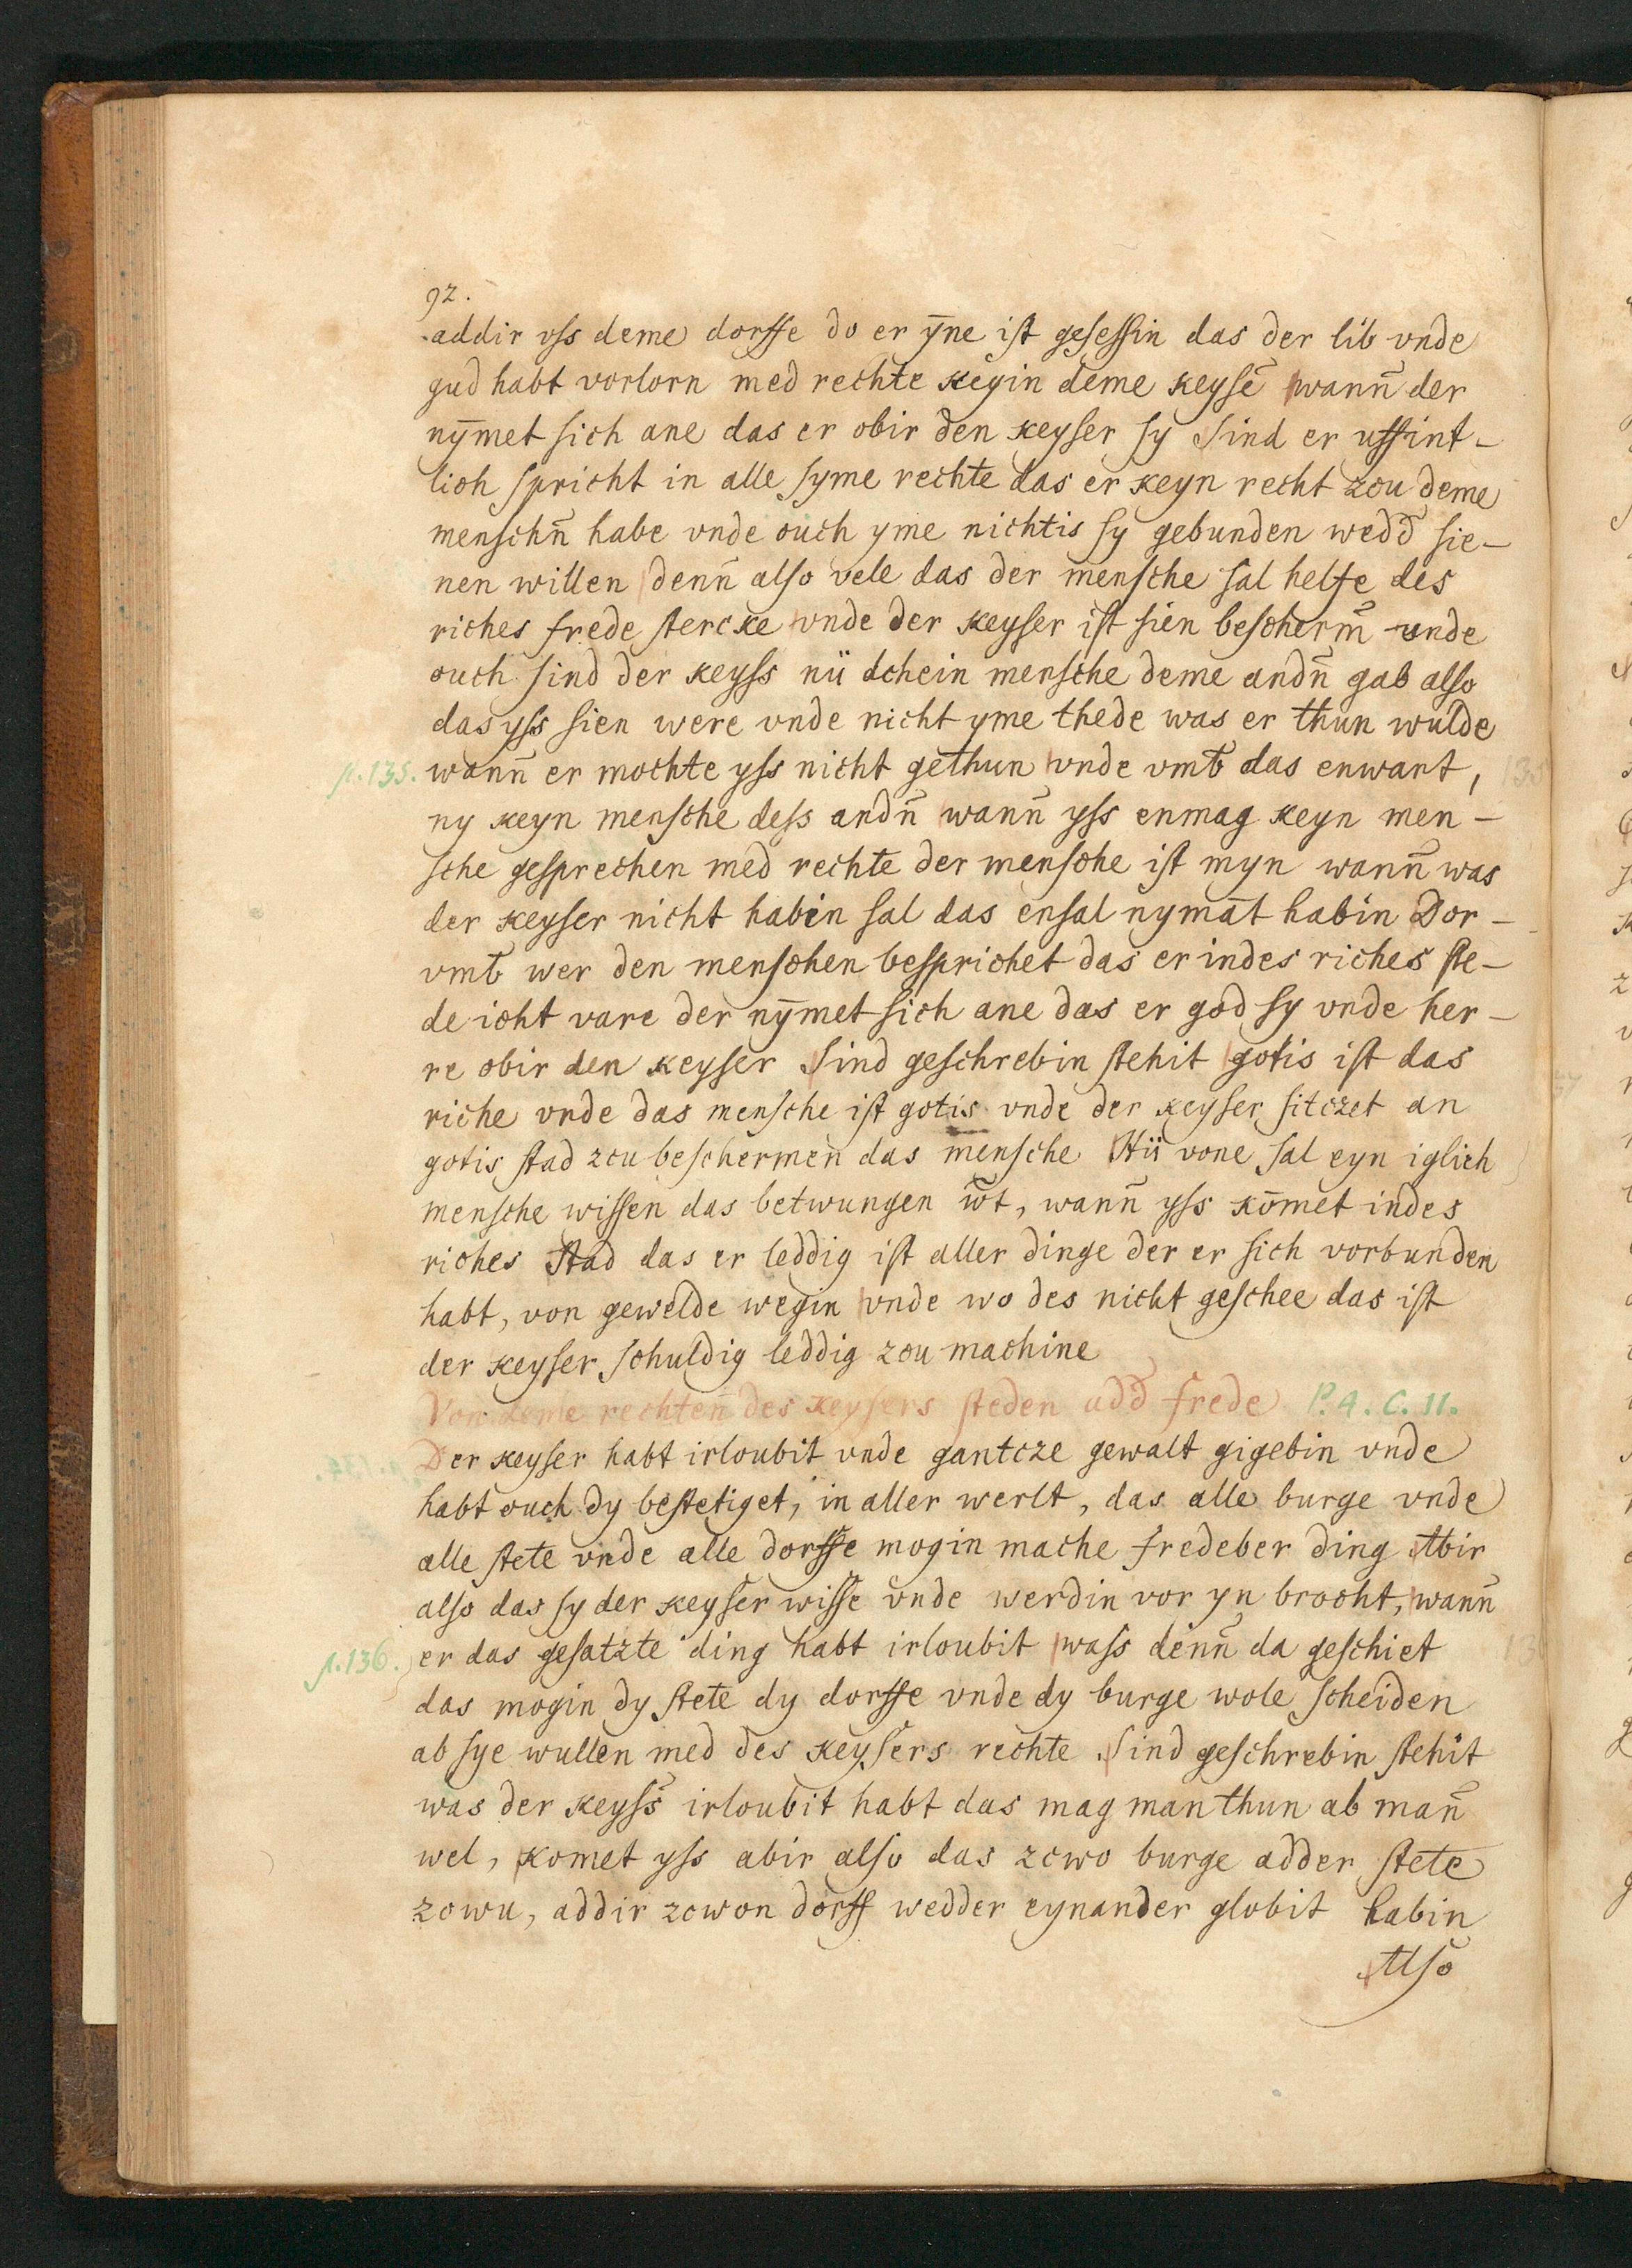 92.
addir vss deme dorffe do er ȳne ist gesessin das der lib vnde
gud habt vorlorn med rechte kegin deme keyse᷑ wann̄ der
nȳmet sich ane das er obir den keyser sy Sind er uffint-
lich spricht in alle syme rechte das er keyn recht zcu deme
menschn̄ habe vnde ouch yme nichtis sy gebunden wedd᷑ sie-
nen willen denn̄ also vele das der mensche sal helfe des
riches frede stercke vnde der keyser ist sien bescherm᷑ vnde
ouch sind der keyss nü dchein mensche deme andn̄ gab also
das yss sien were vnde nicht yme thede was er thun wulde
p. 135. wann̄ er mochte yss nicht gethun vnde vmb̄ das enwart,
ny keyn mensche dess andn̄ wann̄ yss enmag keyn men-
sche gesprechen med rechte der mensche ist myn wann̄ was
der keyser nicht habin sal das ensal nymāt habin Dor-
vmb̄ wer den menschen besprichet das er indes riches ste-
de icht vare der nȳmet sich ane das er god sy vnde her-
re obir den keyser Sind geschrebin stehit gotis ist das
riche vnde das mensche ist gotis vnde der keyser sitczet an
gotis stad zcu beschermen̄ das mensche Hü vone sal eyn iglich
mensche wissen das betwungen w᷑t, wann̄ yss kōmet indes
riches Stad das er leddig ist aller dinge der er sich vorbunden
habt, von gewelde wegin vnde wo des nicht geschee das ist
der keyser schuldig leddig zcu machine
Von deme rechten̄ des keysers steden add᷑ frede P. 4. C. 11.
Der keyser habt irloubit vnde gantcze gewalt gigebin vnde
habt ouch dy bestetiget, in aller werlt, das alle burge vnde
alle stete vnde alle dorffe mogin mache fredeber ding Abir
also das sy der keyser wisse vnde werdin vor yn brocht, wann̄
p. 136. er das gesatzte ding habt irloubit wass denn̄ da geschiet
das mogin dy stete dy dorffe vnde dy burge wole scheiden
ab sye wullen med des keysers rechte Sind geschrebin stehit
was der keyss᷑ irloubit habt das mag man thun ab man̄
wel, komet yss abir also das zcwo burge adder stete
zcwu, addir zcwon dorff wedder eynander globit habin
Also